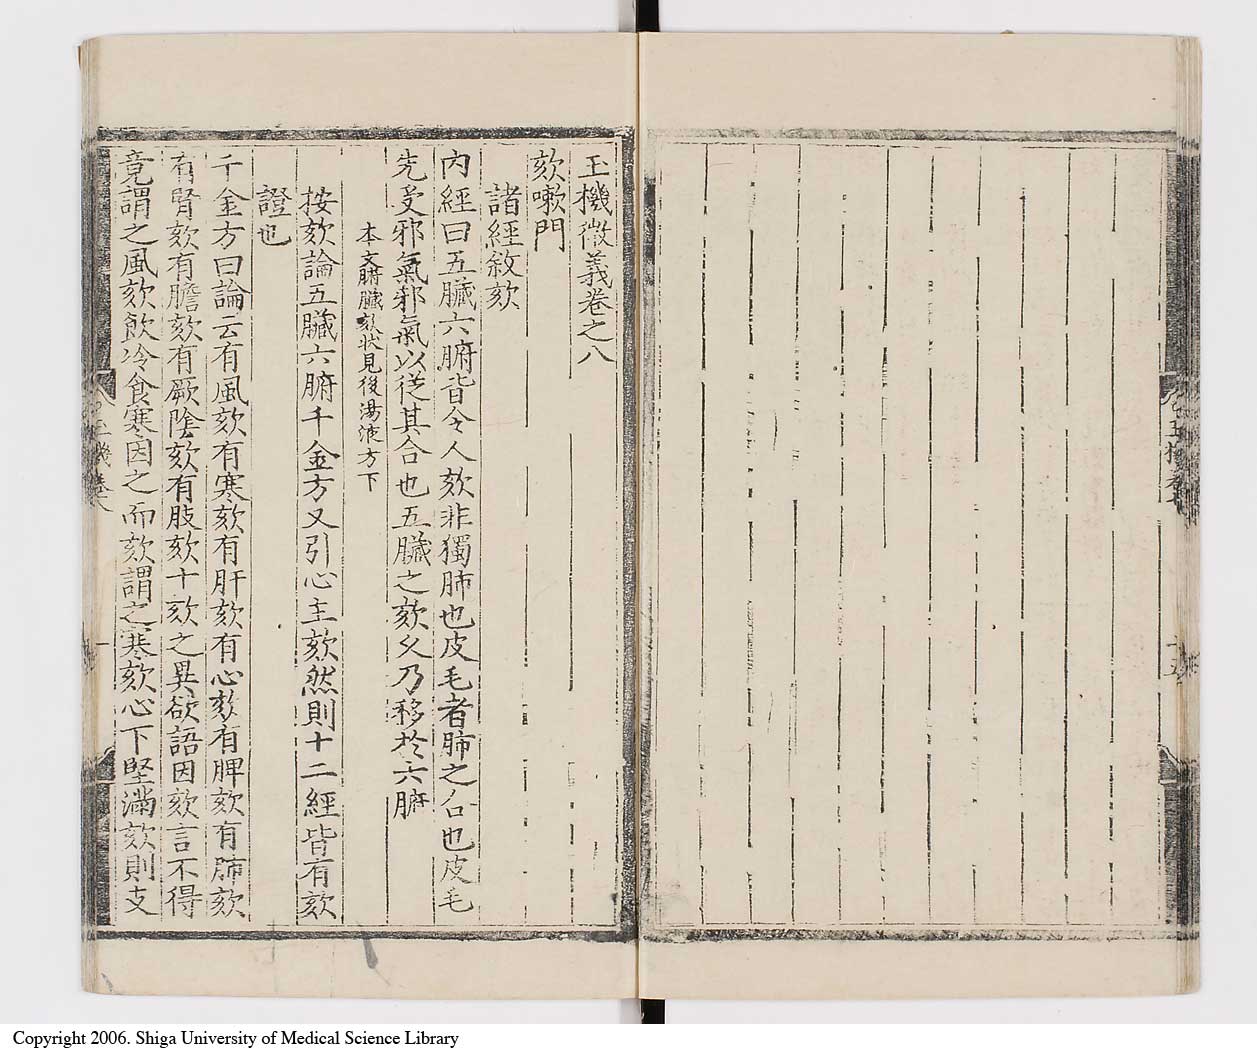 玉機微義卷之八
欬嗽門
諸經敘欬
內經曰五臟六腑皆令人欬非獨肺也皮毛者肺之合也皮毛
先受邪氣邪氣以從其合也五臟之欬久乃移於六腑
本文腑臟欬狀見後湯液方下
按欬論五臟六腑千金方又引心主欬然則十二經皆有欬
證也
千金方曰論云有風欬有寒欬有肝欬有心欬有脾欬有肺欬
有腎欬有膽欬有厥陰欬有肢欬十欬之異欲語因欬言不得
竟謂之風欬飲冷食寒因之而欬謂之寒欬心下堅滿欬則支
玉機卷八
一
Copyright 2006. Shiga University of Medical Science Library